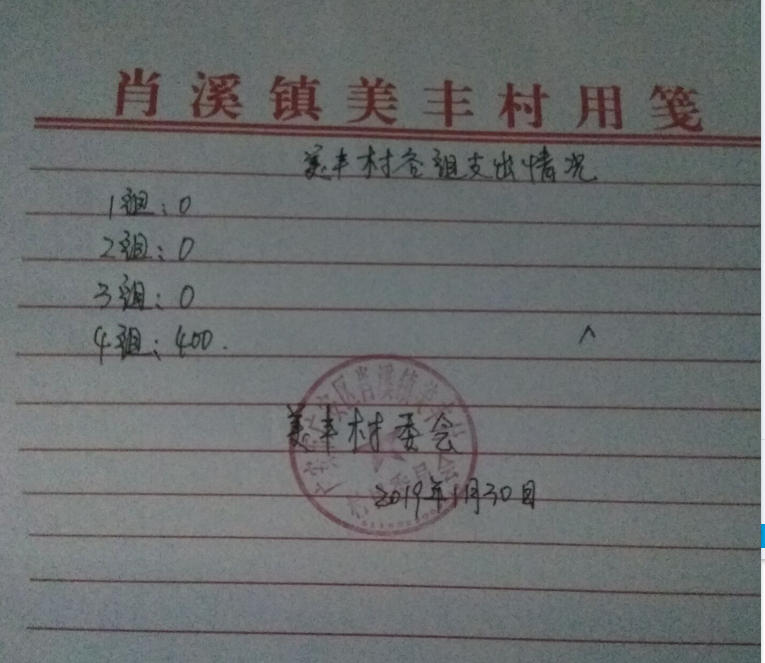 肖溪镇美丰村用笺
美丰村各组支出情况
1组：0
2组：0
3组：0
4组：400.
美丰村委会
2019年1月30日